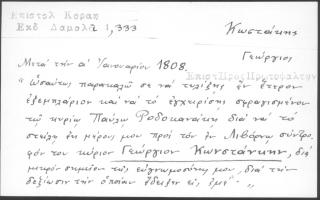 Επιστολ Κοραη
Εκδ Δαμαλᾶ 1,333
Κωστάκης
Γεώργιος
Μετά τήν α' Ἰανουαρίου 1808.
Επιστ Προς Πρωτοψαλτην
"ὡσαύτως παρακαλῶ σε νά τυλίξῃς ἕν ἕτερον
ἐξεμπλάριον καί νά τό ἐγχειρίσῃς σφραγισμένον
τῷ κυρίῳ Παύλῳ Ροδοκανάκῃ διά νά τό
στείλῃ ἐκ μέρους μου πρός τόν ἐν Λιβόρνῳ σύντρο-
φόν του κύριον Γεώργιον Κωνστάκην, διά
μικρόν σημεῖον τῆς εὐγνωμοσύνης μου, διά τήν
δεξίωσιν τήν ὁποίαν ἔδειξεν εἰς ἐμέ"